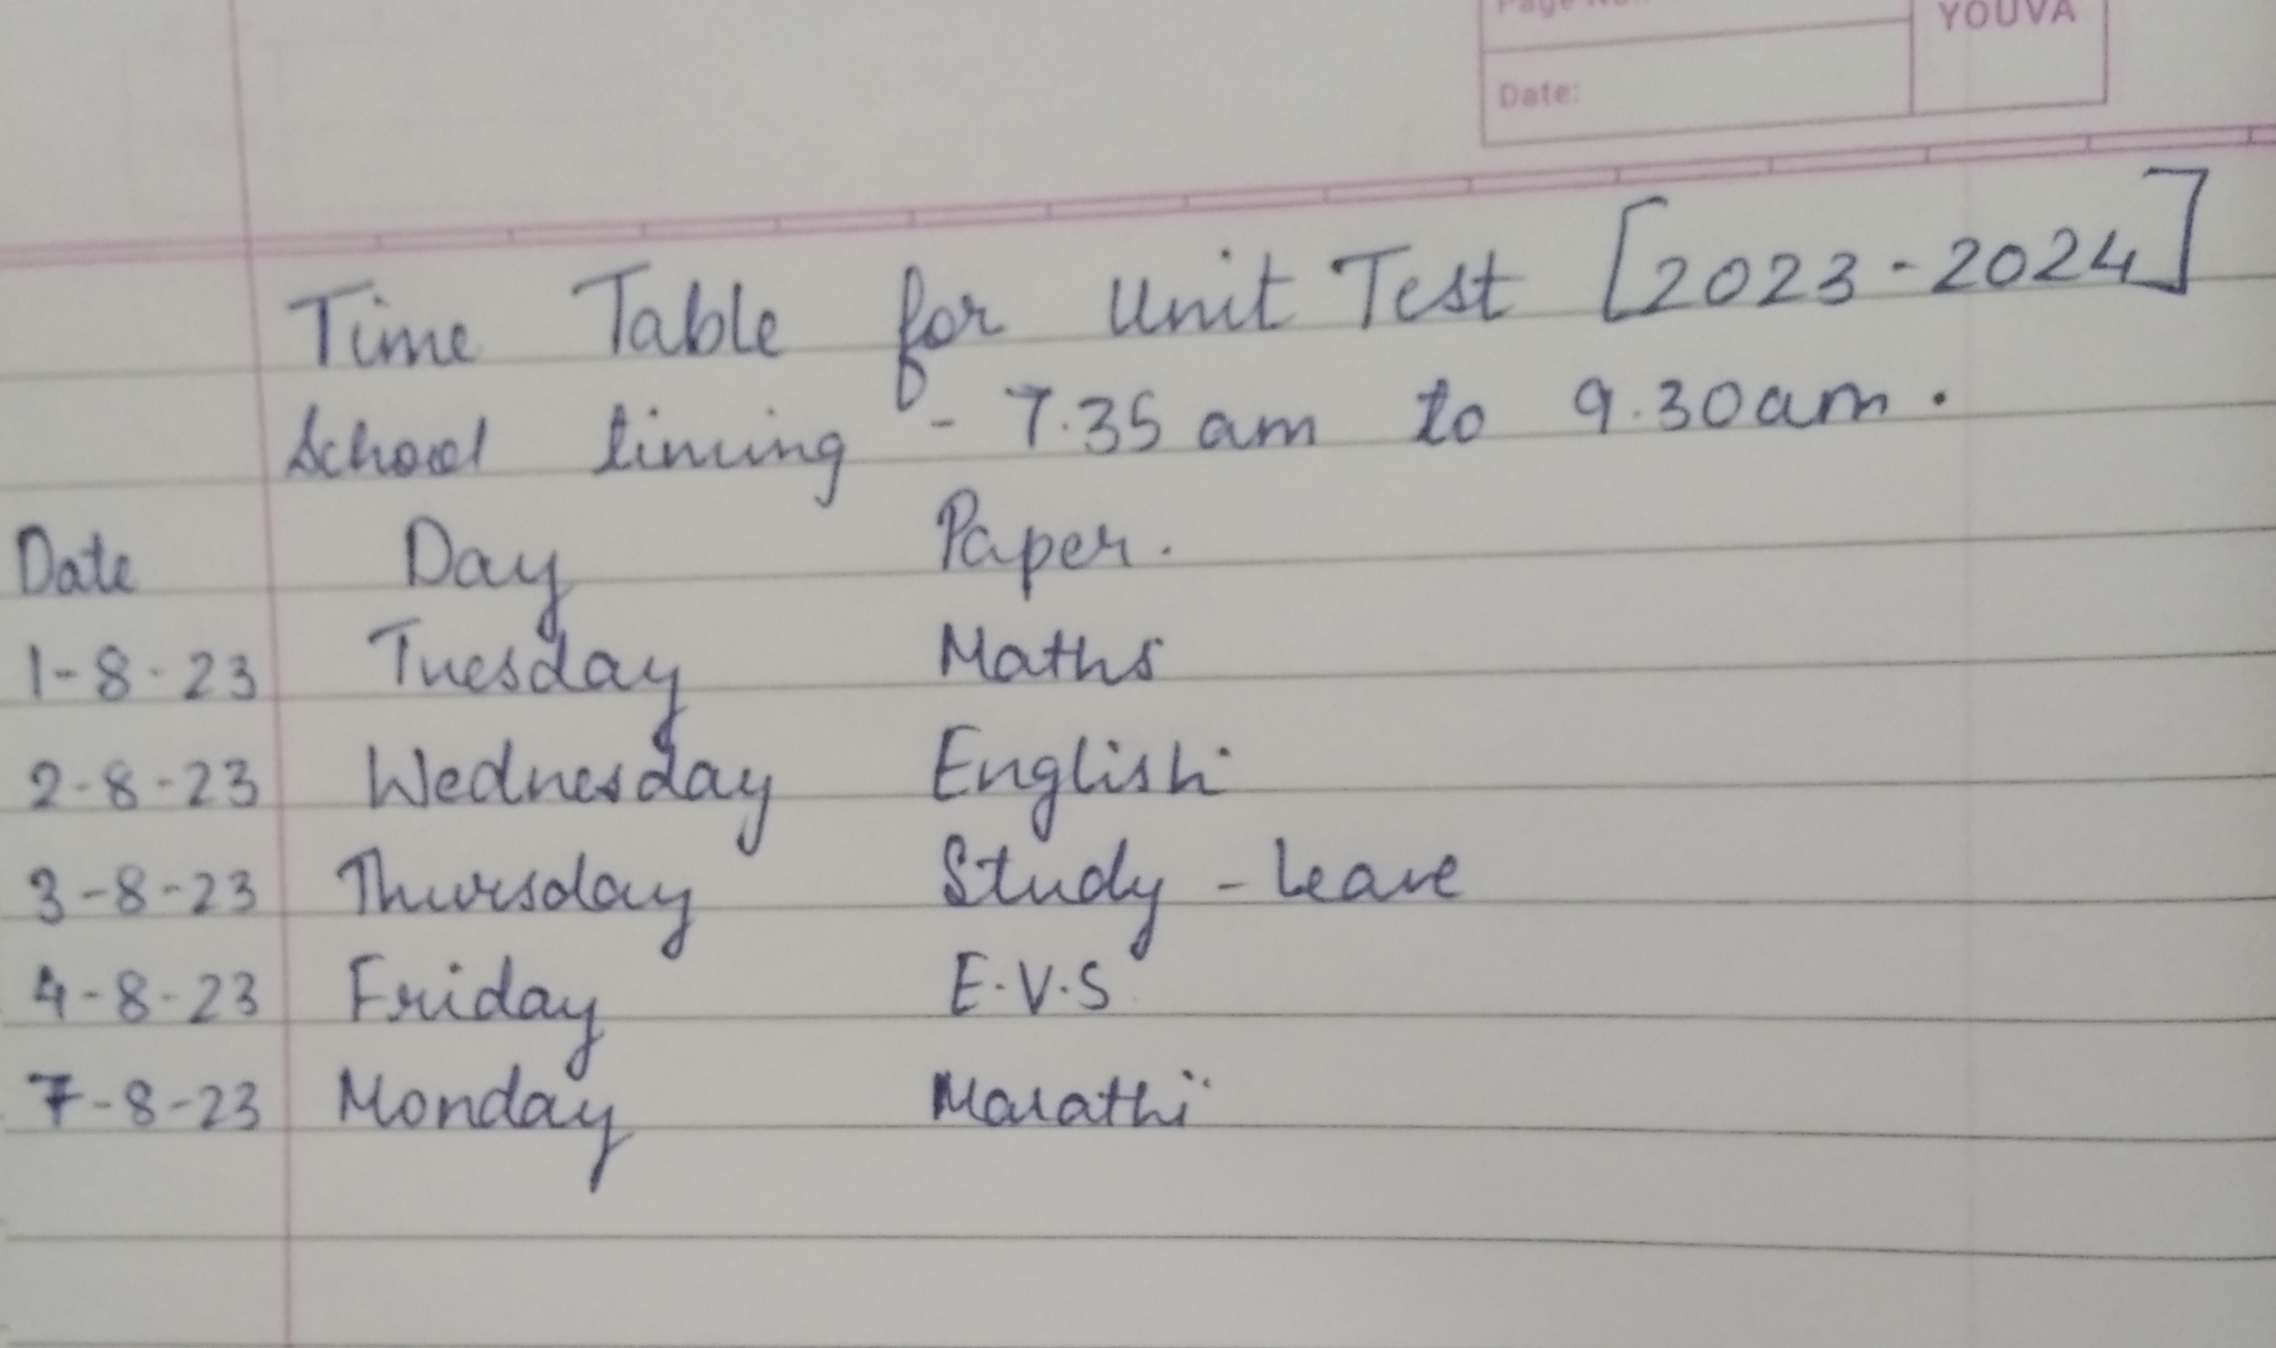 Page No.
YOUVA
Date:
Time Table for Unit Test [2023-2024]
School timing - 7.35 am to 9.30am.
Date Day Paper.
1-8-23 Tuesday Maths
2-8-23 Wednesday English
3-8-23 Thursday Study - leave
4-8-23 Friday E.V.S
7-8-23 Monday Marathi